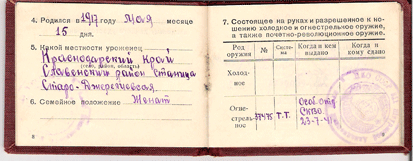 4. Родился в 1917 году мая месяце
15 дня.
5. Какой местности уроженец
Краснодарский край
Славянский район станица
(село, район, область)
Старо-Джерелиевская
6. Семейное положение Женат
8
7. Состоящее на руках и разрешенное к но-
шению холодное и огнестрельное оружие,
а также почетно-революционное оружие.
Род оружия № Систе-ма Когда и кем выдано Когда и кому сдано
Холод-
ное
Огне-
стрель-
ное Т.Т. Особ. отд. СКВО 23-7-41